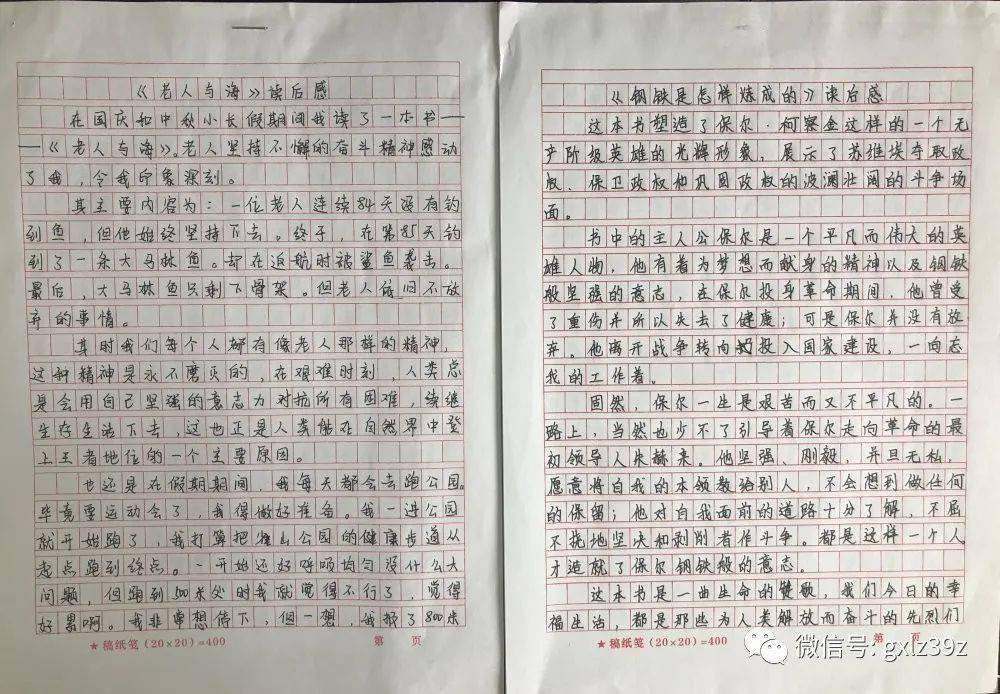 《老人与海》读后感
在国庆和中秋小长假期间我读了一本书—
—《老人与海》。老人坚持不懈的奋斗精神感动
了我，令我印象深刻。
其主要内容为：一位老人连续84天没有钓
到鱼，但他始终坚持下去。终于，在第85天钓
到了一条大马林鱼。却在返航时被鲨鱼袭击。
最后，大马林鱼只剩下骨架。但老人依旧不放
弃的事情。
其时我们每个人都有像老人那样的精神，
这种精神是永不磨灭的，在艰难时刻，人类总
是会用自己坚强的意志力对抗所有困难，续继
生存生活下去，这也正是人类能在自然界中登
上王者地位的一个主要原因。
也还是在假期期间，我每天都会去跑公园。
毕竟要运动会了，我得做好准备。我一进公园
就开始跑了，我打算把山公园的健康步道从
起点跑到终点。一开始还好呼吸均匀没什么大
问题，但跑到500米处时我就觉得不行了，觉得
好累啊。我非常想停下，但一想，我报了800米
★稿纸笺（20×20）=400 第 页
《钢铁是怎样炼成的》读后感
这本书塑造了保尔·柯察金这样的一个无
产阶级英雄的光辉形象，展示了苏维埃夺取政
权、保卫政权和巩固政权的波澜壮阔的斗争场
面。
书中的主人公保尔是一个平凡而伟大的英
雄人物，他有着为梦想而献身的精神以及钢铁
般坚强的意志，在保尔投身革命期间，他曾受
了重伤并所以失去了健康；可是保尔并没有放
弃。他离开战争转向投入国家建设，一向忘
我的工作着。
固然，保尔一生是艰苦而又不平凡的。一
路上，当然也少不了引导着保尔走向革命的最
初领导人朱赫来。他坚强、刚毅，并且无私，
愿意将自我的本领教给别人，不会想到做任何
的保留；他对自我面前的道路十分了解，不屈
不挠地坚决和剥削者作斗争。都是这样一个人
才造就了保尔钢铁般的意志。
这本书是一曲生命的赞歌，我们今日的幸
福生活，都是那些为人类解放而奋斗的先烈们
★稿纸笺（20×20）=400 第 页
微信号: gxlz39z